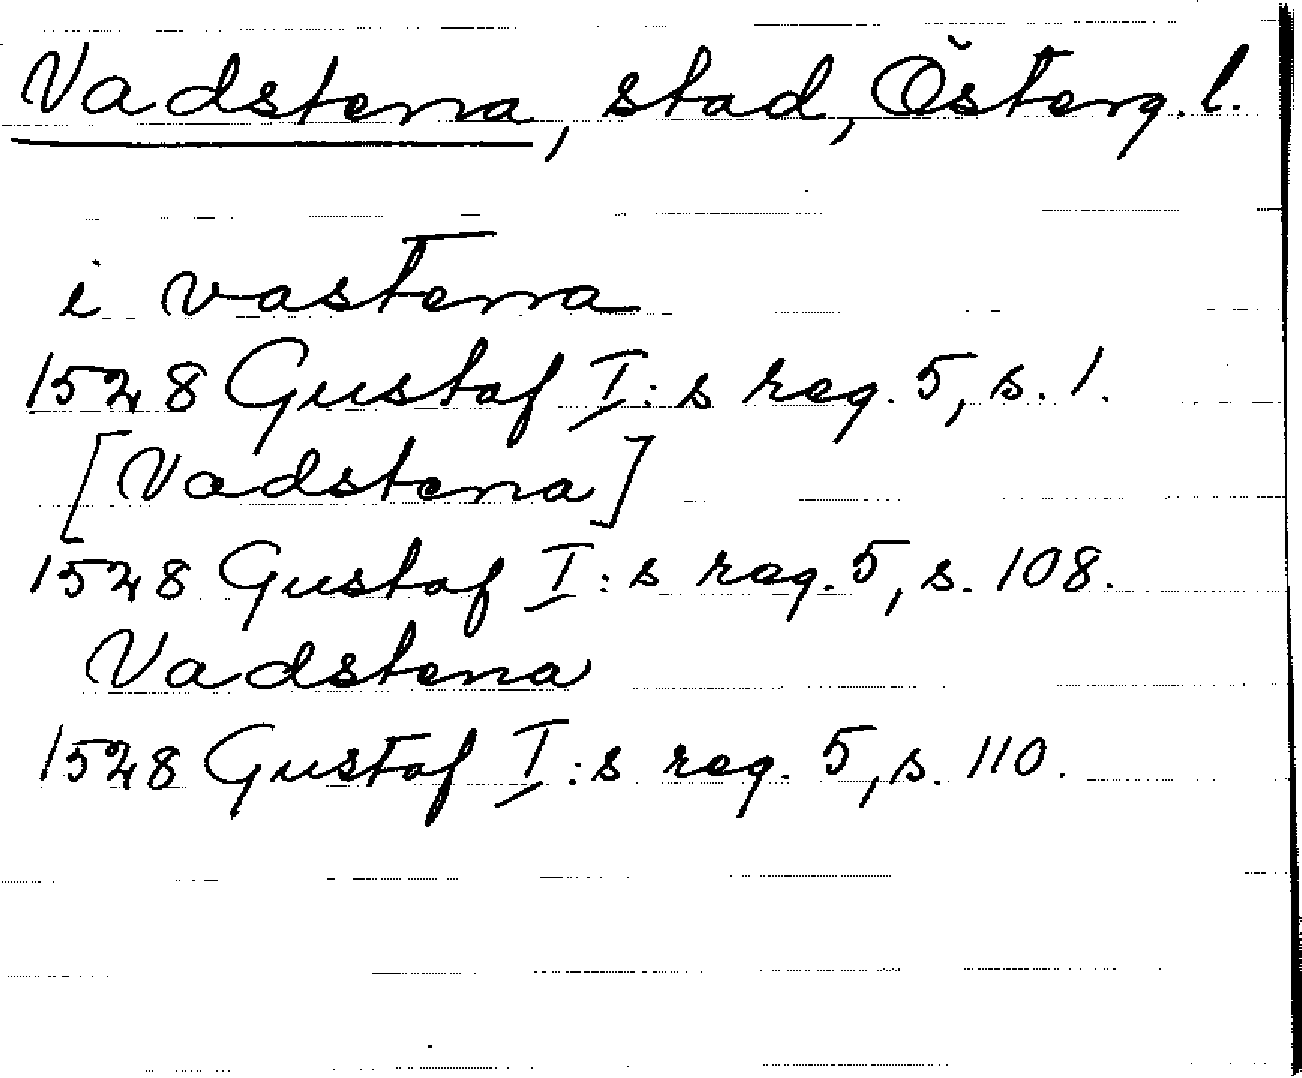 Vadstena, stad, Österg. l.
i vastena
1528 Gustaf I:s reg. 5, s. 1.
[Vadstena]
1528 Gustaf I:s reg. 5, s. 108.
Vadstena
1528 Gustaf I:s reg. 5, s. 110.